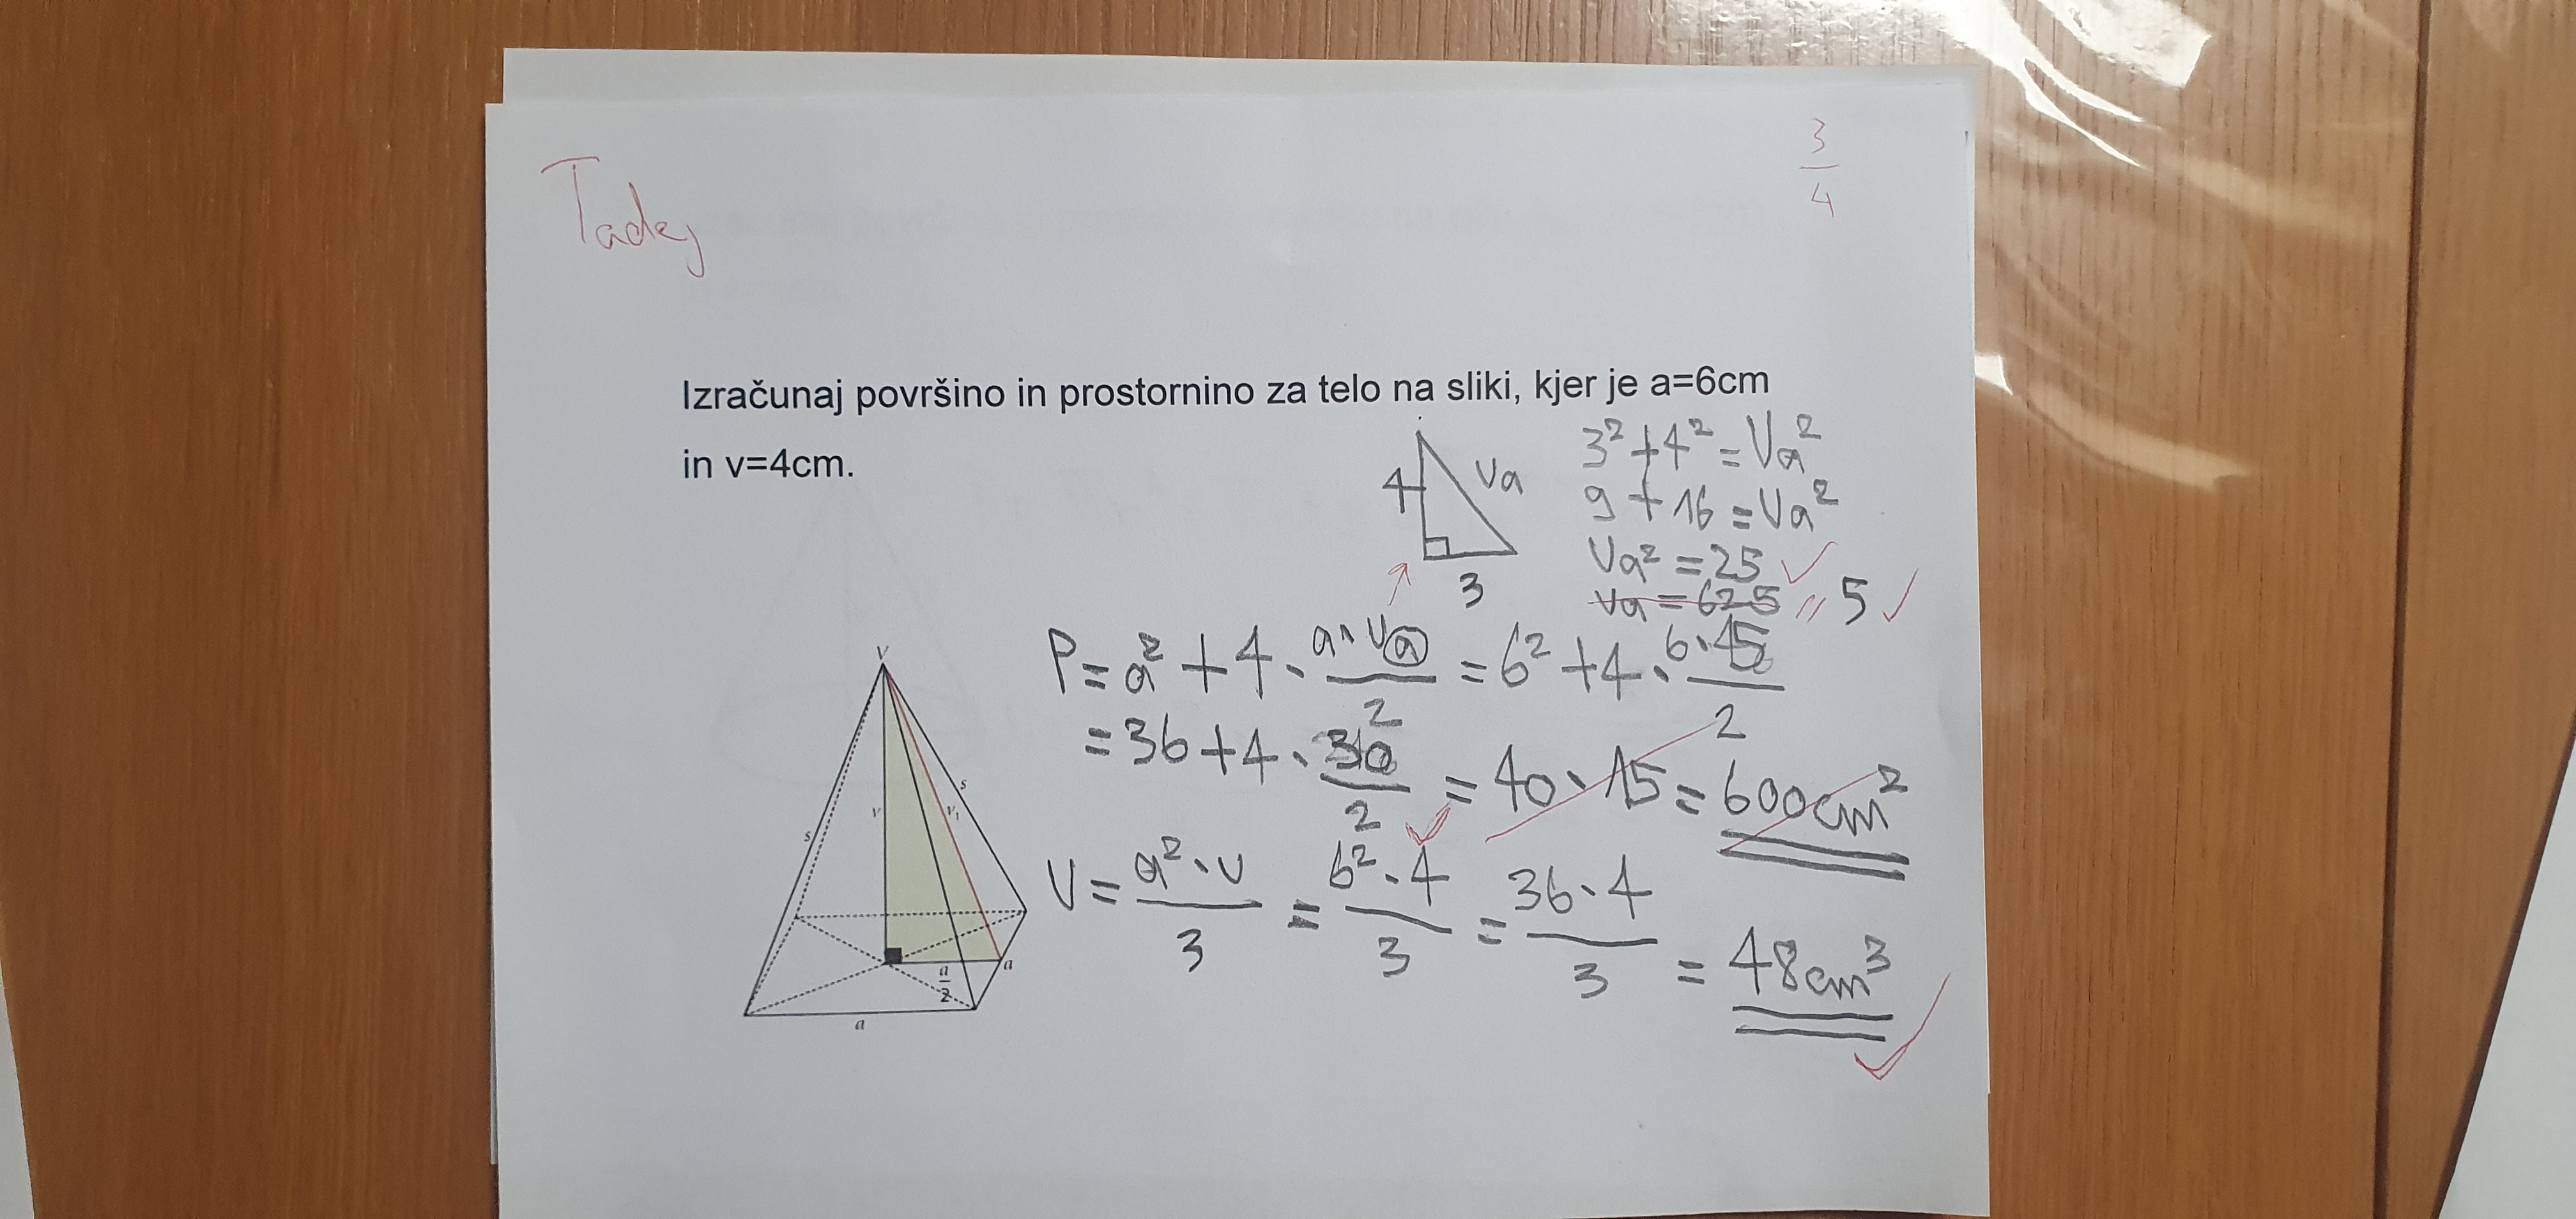 Tadej
3
4
Izračunaj površino in prostornino za telo na sliki, kjer je a=6cm
in v=4cm.
4
3
va
3² + 4² = va²
9 + 16 = va²
va² = 25
= 5
V
s
v
v₁
s
a
2
a
a
P = a² + 4 · a · va
2
= 6² + 4 · 6 ·
2
= 36 + 4 ·
2
= 40 · 15 = 600cm²
V = a² · v
3
= 6² · 4
3
= 36 · 4
3
= 48cm³